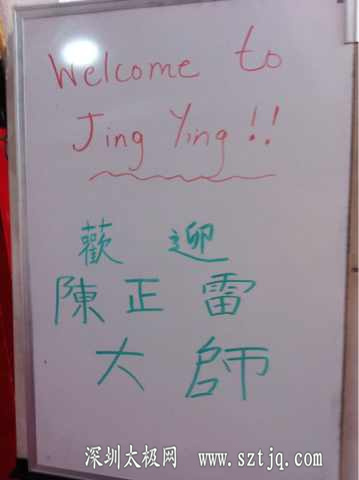 Welcome to
Jing Ying!!
歡迎
陳正雷
大師
深圳太极网 www.sztjq.com